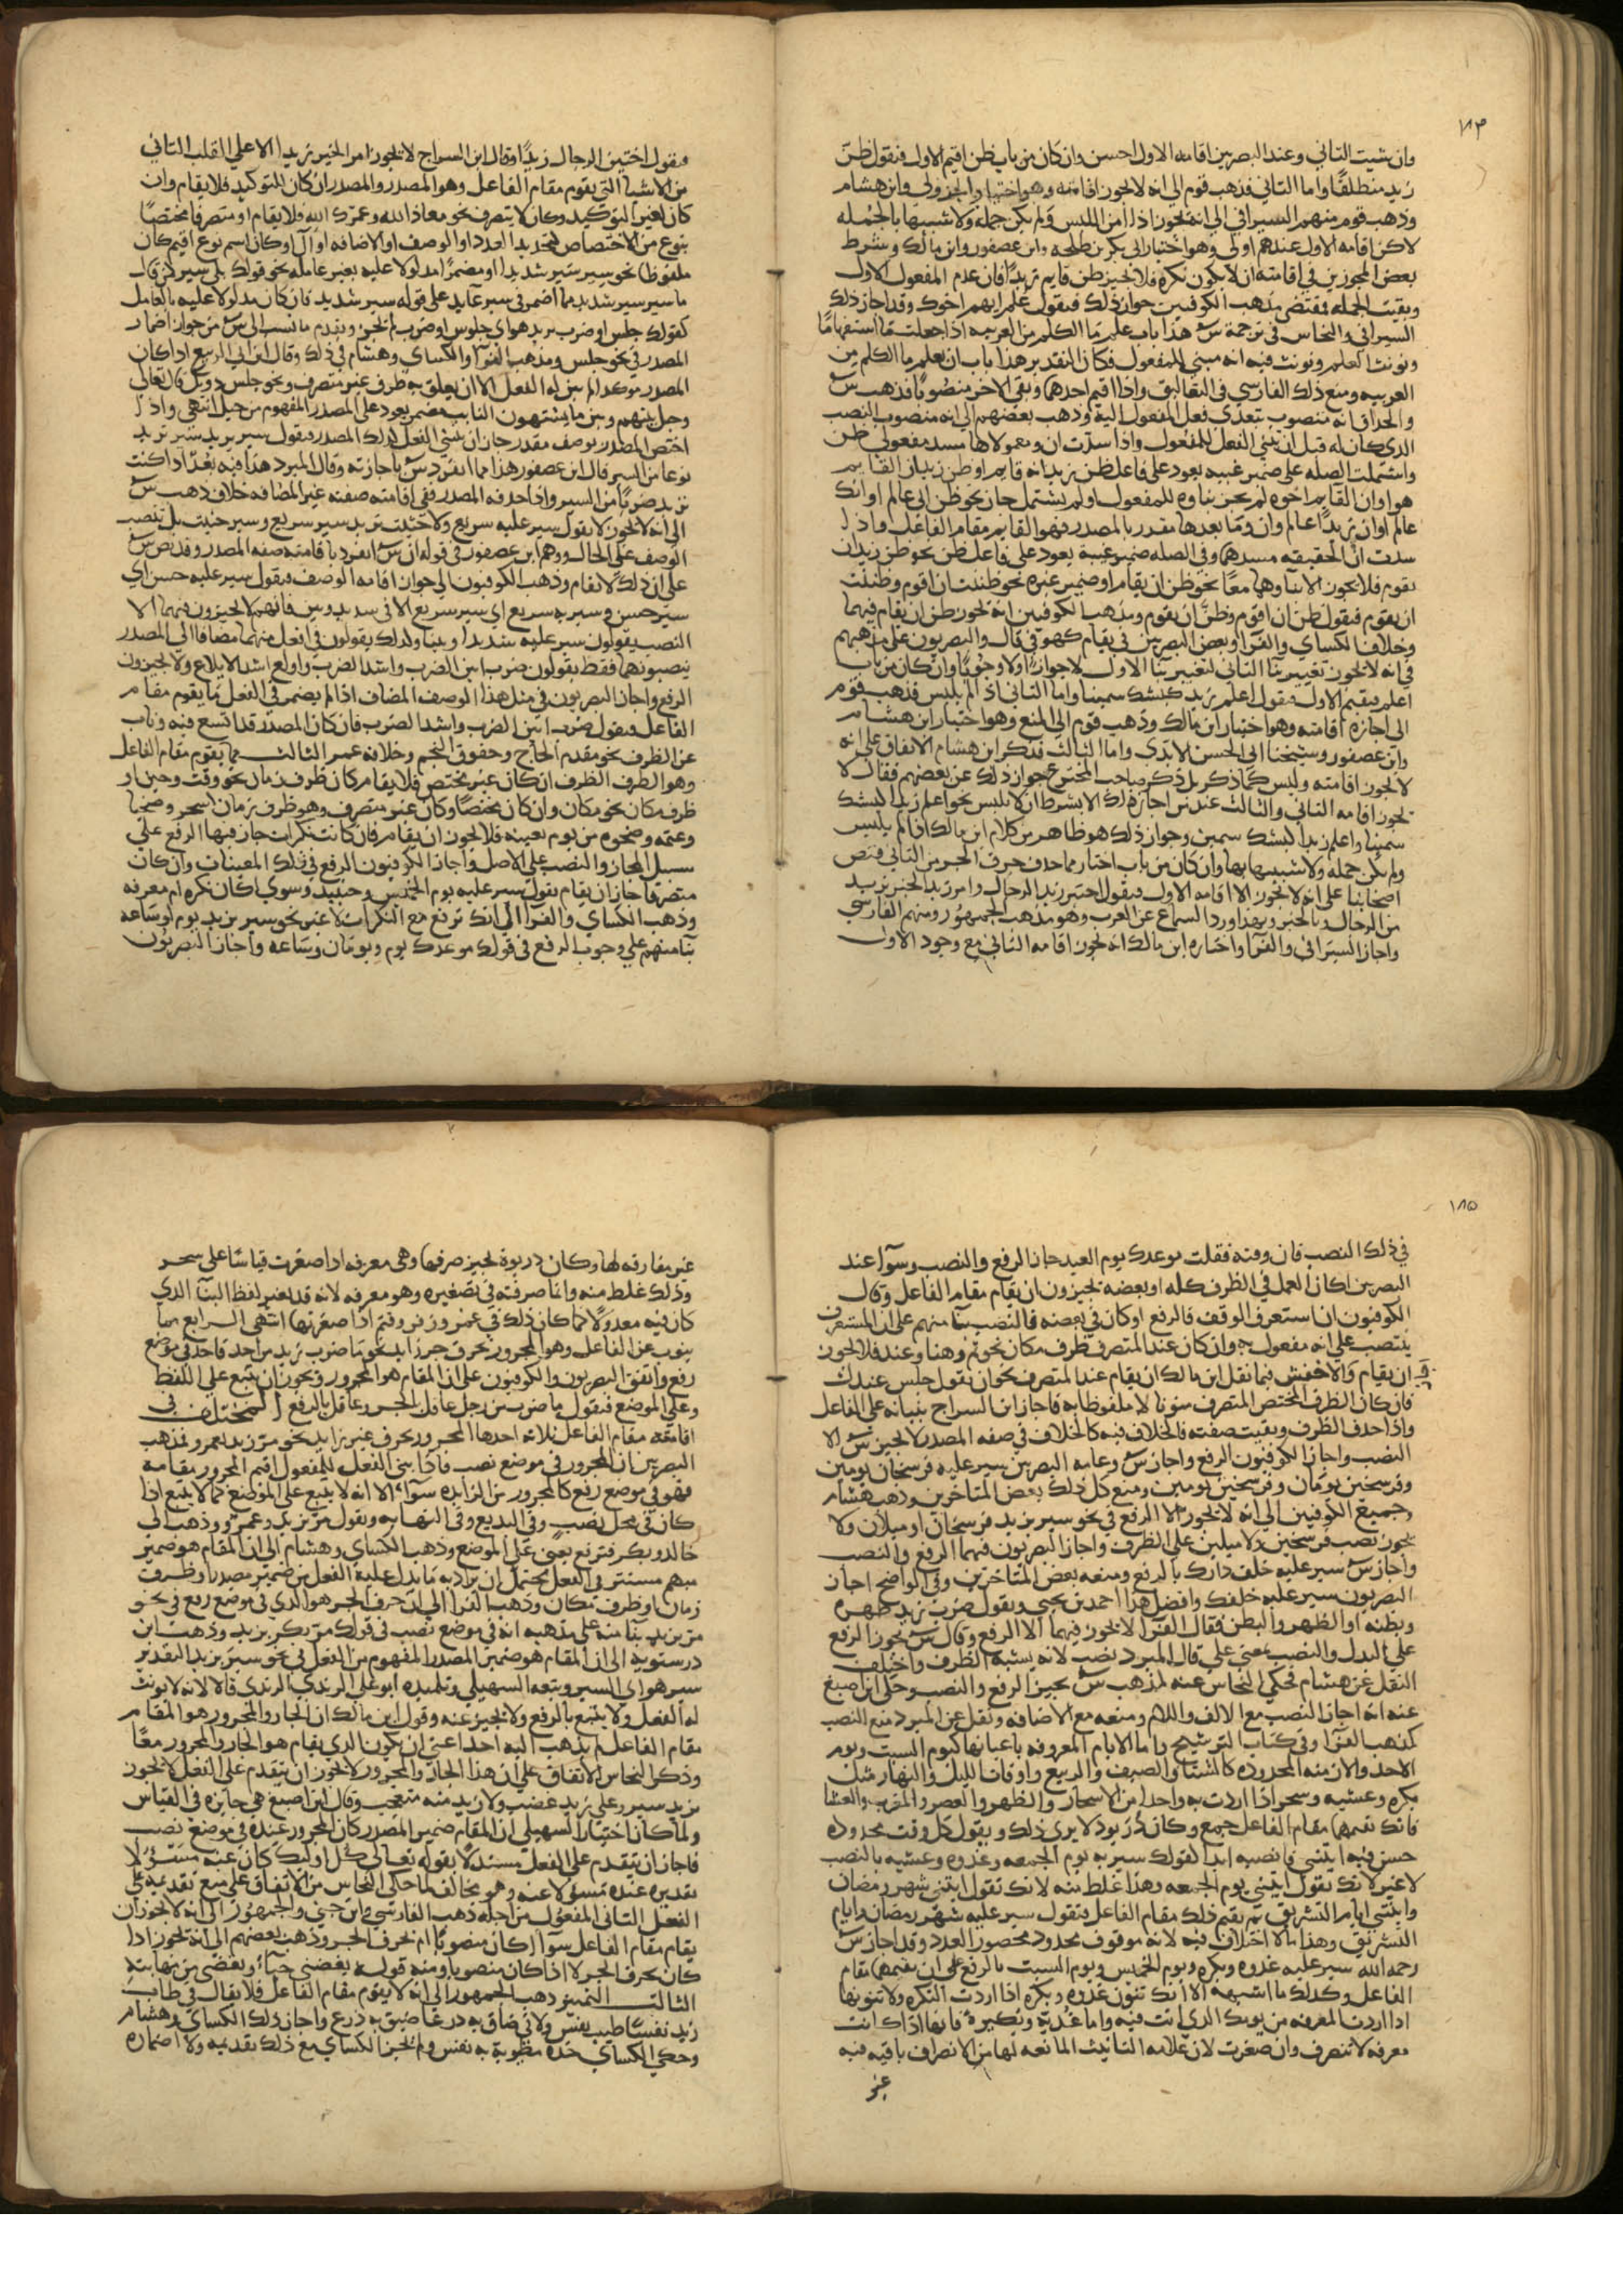 ١٨٣
وان شيت الثاني وعند البصريين اقامه الاول احسن وان كان من باب ظن اقيم الاول فتقول ظن
زيد منطلقا واما الثاني فذهب قوم الى انه لا يجوز اقامته وهو اختيار الجزولي وابن هشام
وذهب قوم منهم السيرافي الى انه يجوز اذا امن اللبس ولم يكن جملة ولا شبيها بالجمله
لاكن اقامه الاول عندهم اولى وهو اختيار ابي بكر بن طلحه وابن عصفور وابن مالك وشرط
بعض المجوزين في اقامته ان لا يكون نكره فلا يجيز ظن قايم زيدا فان عدم المفعول الاول
وبقيت الجمله فمقتضى مذهب الكوفيين جواز ذلك فيقول علم ايهم اخوك وقد اجاز ذلك
السيرافي والنحاس في ترجمة س هذا باب علم ما الكلم من العربيه اذا جعلت ما استفهاما
ونونت العلم ونونت فيه انه مبني للمفعول فكان التقدير هذا باب ان يعلم ما الكلم من
العربيه ومنع ذلك الفارسي في التعاليق واذا اقيم احدهما وبقي الاخر منصوبا فذهب س
والحذاق انه منصوب بتعدى فعل المفعول اليه وذهب بعضهم الى انه منصوب النصب
الذي كان له قبل ان يبني الفعل للمفعول واذا سدت ان ومعمولاها مسد مفعولي ظن
واشتملت الصله على ضمير غيبه يعود على فاعل ظن زيد انه قايم او ظن زيد ان القايم
هو او ان القايم اخوه لم يجز بناوه للمفعول ولم يشتمل جاز نحو ظن اني عالم او انك
عالم او ان زيدا عالم وان وما بعدها مقدر بالمصدر فهو القايم مقام الفاعل واذا
سدت ان الخفيفه مسدهما وفي الصله ضمير غيبة يعود على فاعل ظن نحو ظن زيد ان
يقوم فلا يجوز الا بناوهما معا نحو ظن ان يقام او ضمير غيره نحو ظننت ان اقوم وظننت
ان يقوم فيقول ظن ان اقوم وظن ان يقوم ومذهب الكوفيين انه يجوز ظن ان يقام فيهما
وخلاف الكساي والفرا وبعض البصريين في يقام كهو في قال والبصريون على مذهبهم
في انه لا يجوز تغيير بنا الثاني لتغيير بنا الاول لا جوازا ولا وجوبا وان كان من باب
اعلم فيقيم الاول فيقول اعلم زيد كبشك سمينا واما الثاني اذا لم يلبس فذهب قوم
الى اجازة اقامته وهو اختيار ابن مالك وذهب قوم الى المنع وهو اختيار ابن هشام
وابن عصفور وشيخنا ابي الحسن الابذي واما الثالث فذكر ابن هشام الاتفاق على انه
لا يجوز اقامته وليس كما ذكر بل ذكر صاحب المخترع جواز ذلك عن بعضهم فقال لا
يجوز اقامه الثاني والثالث عند من اجاز ذلك الا بشرط ان لا يلبس نحو اعلم زيدا كبشك
سمينا واعلم زيدا كبشك سمين وجواز ذلك هو ظاهر من كلام ابن مالك اذا لم يلبس
ولم يكن جمله ولا شبيها بها وان كان من باب اختار مما حذف حرف الجر من الثاني فنص
اصحابنا على انه لا يجوز الا اقامه الاول فيقول اختير زيد الرجال وامر زيد الخير يزيد
من الرجال وبالخير وبهذا ورد السماع عن العرب وهو مذهب الجمهور ومنهم الفارسي
واجاز السيرافي والفرا واختاره ابن مالك انه يجوز اقامه الثاني مع وجود الاول
فيقول اختير الرجال زيدا وقال ابن السراج لا يجوز امر الخير زيدا الا على القلب الثاني
من الاشيا التي يقوم مقام الفاعل وهو المصدر والمصدر ان كان للتوكيد فلا يقام وان
كان لغير التوكيد وكان لا يتصرف نحو معاذ الله وعمرك الله فلا يقام او متصرفا مختصا
بنوع من الاختصاص لتحديد العدد او الوصف او الاضافه او ال او كان اسم نوع اقيم كان
ملفوظا نحو سير سير شديد او مضمرا مدلولا عليه بغير عامله نحو قولك بلى سير لمن قال
ما سير سير شديد مما اضمر في سير عايد على قوله سير شديد فان كان مدلولا عليه بالعامل
كقولك جلس او ضرب يريد هو اي جلوس او ضرب لم يجز وتقدم ما نسب الى س من جواز اضمار
المصدر في نحو جلس ومذهب الفرا والكساي وهشام في ذلك وقال ابن ابي الربيع اذا كان
المصدر موكدا لم يبن له الفعل الا ان يعلق به ظرف غير متصرف ونحو جلس دونك قال تعالى
وحيل بينهم وبين ما يشتهون النايب مضمر يعود على المصدر المفهوم من حيل انتهى واذا
اختص المصدر بوصف مقدر جاز ان يبني الفعل لذلك المصدر فيقول سير بزيد سير تريد
نوعا من السير قال ابن عصفور هذا مما انفرد س باجازته وقال المبرد هذا فيه بعد اذا كنت
تريد ضربا من السير واذا حذف المصدر ففي اقامته صفته غير المضافه خلاف ذهب س
الى انه لا يجوز لا يقول سير عليه سريع ولا حثيث تريد سير سريع وسير حثيث بل ينصب
الوصف على الحال ووهم ابن عصفور في قوله ان س انفرد باقامته صفه المصدر وقد نص س
على ان ذلك لا يقام وذهب الكوفيون الى جواز اقامه الوصف فيقول سير عليه حسن اي
سير حسن وسير به سريع اي سير سريع الا في شديد وبين فانهم لا يجيزون فيهما الا
النصب يقولون سير عليه شديدا وبينا ولذلك يقولون في افعل منهما مضافا الى المصدر
ينصبونهما فقط يقولون ضرب ابين الضرب واشد الضرب واولع اشد الايلاع ولا يجيزون
الرفع واجاز البصريون في مثل هذا الوصف المضاف اذا لم يضمر في الفعل ما يقوم مقام
الفاعل فيقول ضرب ابين الضرب واشد الضرب فان كان المصدر قد اتسع فيه وناب
عن الظرف نحو مقدم الحاج وخفوق النجم وخلافه عمر الثالث مما يقوم مقام الفاعل
وهو الظرف الظرف ان كان غير مختص فلا يقام كان ظرف زمان نحو وقت وحين او
ظرف مكان نحو مكان وان كان مختصا وكان غير متصرف وهو ظرف زمان سحر وضحيا
وعتمه وضحوه من يوم بعينه فلا يجوز ان يقام فان كانت نكرات جاز فيها الرفع على
سبيل المجاز والنصب على الاصل واجاز الكوفيون الرفع في تلك المعينات وان كان
متصرفا جاز ان يقام يقول سير عليه يوم الخميس وحينئذ وسوي اكان نكره ام معرفه
وذهب الكساي والفرا الى انك ترفع مع النكرات لا غير نحو سير بزيد يوم او ساعه
بنا منهم على وجوب الرفع في قولك موعدك يوم ويومان وساعه واجاز البصريون
١٨٥
في ذلك النصب فان وقته فقلت موعدك يوم العيد جاز الرفع والنصب وسوآ عند
البصريين اكان العمل في الظرف كله او بعضه يجيزون ان يقام مقام الفاعل وقال
الكوفيون ان استغرق الوقف فالرفع او كان في بعضه فالنصب بنا منهم على ان المستغرف
ينتصب على انه مفعول به وان كان عند المتصرف ظرف مكان نحو ثم وهنا وعند فلا يجوز
ان يقام والاخفش فيما نقل ابن مالك ان يقام عند المتصرف نحو ان تقول جلس عندك
فان كان الظرف المختص المتصرف منويا لا ملفوظا به فاجاز ابن السراج بنيانه على الفاعل
واذا حذف الظرف وبقيت صفته فالخلاف فيه كالخلاف في صفه المصدر لا يجيز س الا
النصب واجاز الكوفيون الرفع واجاز س وعامه البصريين سير عليه فرسخان يومين
وفرسخين يومان وفرسخين يومين ومنع كل ذلك بعض المتاخرين وذهب هشام
وجميع الكوفيين الى انه لا يجوز الا الرفع في نحو سير بزيد فرسخان او ميلان ولا
يجوز نصب فرسخين ولا ميلين على الظرف واجاز البصريون فيهما الرفع والنصب
واجاز س سير عليه خلف دارك بالرفع ومنعه بعض المتاخرين وفي الواضح اجاز
البصريون سير عليه خلفك وافضل هذا احمد بن يحيى ويقول ضرب زيد ظهره
وبطنه او الظهر والبطن فقال الفرا لا يجوز فيهما الا الرفع وقال س يجوز الرفع
على البدل والنصب بمعنى على قال المبرد نصب لانه يشبه الظرف واختلف
النقل عن هشام فحكي النحاس عنه لمذهب س يجيز الرفع والنصب وحكى ابن اصبغ
عنه انه اجاز النصب مع الالف واللام ومنعه مع الاضافه ونقل عن المبرد منع النصب
كمذهب الفرا وفي كتاب الترشيح واما الايام المعروفه باعيانها كيوم السبت ويوم
الاحد والازمنه المحدوده كالشتا والصيف والربيع واوقات الليل والنهار مثل
بكره وعشيه وسحر اذا اردت به واحدا من الاسحار والظهر والعصر والمغرب والعشا
فانك تقيمها مقام الفاعل جميع وكان دريود لا يرى ذلك ويقول كل وقت محدوده
حسن فيه ايتني فانصبه ابدا لقولك سير به يوم الجمعه وغدوه وعشيه بالنصب
لا غير لانك تقول ايتني يوم الجمعه وهذا غلط منه لانك تقول ايتني شهر رمضان
وايتني ايام التشريق ثم يقيم ذلك مقام الفاعل فتقول سير عليه شهر رمضان وايام
التشريق وهذا ما لا اختلاف فيه لانه موقوف محدود محصور العدد وقد اجاز س
رحمه الله سير عليه غدوه وبكره ويوم الخميس ويوم السبت بالرفع على ان يقيمها مقام
الفاعل وكذلك ما اشبهه الا انك تنون غدوه وبكره اذا اردت النكره ولا تنونها
اذا اردت المعرفه من يومك الذي انت فيه واما غدية وبكيرة فانها اذا كانت
معرفه لا تنصرف وان صغرت لان علامه التانيث المانعه لها من الانصراف باقيه فيه
غير
غير مفارقه لها وكان دريوة يجيز صرفها وهي معرفه اذا صغرت قياسا على سحر
وذلك غلط منه وانما صرفته في تصغيره وهو معرفه لانه قد يغير لفظ البنا الذي
كان فيه معدولا كما كان ذلك في عمر وزفر وقثم اذا صغرتها انتهى الرابع مما
ينوب عن الفاعل وهو المجرور بحرف جر زايد نحو ما ضرب زيد من احد فاحد في موضع
رفع واتفق البصريون والكوفيون على ان المقام هو المجرور ويجوز ان يتبع على اللفظ
وعلى الموضع فيقول ما ضرب من رجل عاقل الجر وعاقل بالرفع المختلف في
اقامته مقام الفاعل ثلاثه احدها المجرور بحرف غير زايد نحو مر زيد بعمرو فمذهب
البصريين ان المجرور في موضع نصب فاذا بني الفعل للمفعول اقيم المجرور مقامه
فهو في موضع رفع كالمجرور من الزايده سوآء الا انه لا يتبع على الموضع كما لا يتبع اذا
كان في محل نصب وفي البديع وفي النهايه ويقول مر بزيد وعمرو وذهب الى
خالد وبكر فترفع يعني على الموضع وذهب الكساي وهشام الى ان المقام هو ضمير
مبهم مستتر في الفعل يحتمل ان يراد به ما يدل عليه الفعل من ضمير مصدر او ظرف
زمان او ظرف مكان وذهب الفرا الى ان حرف الجر هو الذي في موضع رفع في نحو
مر بزيد بنا منه على مذهبه انه في موضع نصب في قولك مر بكر بزيد وذهب ابن
درستويه الى ان المقام هو ضمير المصدر المفهوم من الفعل في نحو سير بزيد التقدير
سير هو اي السير وتبعه السهيلي وتلميذه ابو علي الرندي الرندي قالا لانه لا يونث
له الفعل ولا يتبع بالرفع ولا يخبر عنه وقول ابن مالك ان الجار والمجرور هو المقام
مقام الفاعل لم يذهب اليه احد اعني ان يكون الذي يقام هو الجار والمجرور معا
وذكر النحاس الاتفاق على ان هذا الجار والمجرور لا يجوز ان يتقدم على الفعل لا يجوز
بزيد سير وعلى زيد غضب ولا زيد منه متعجب وقال ابن اصبغ هي جايزه في القياس
ولما كان اختيار السهيلي ان المقام ضمير المصدر كان المجرور عنده في موضع نصب
فاجاز ان يتقدم على الفعل مستدلا بقوله تعالى كل اوليك كان عنه مسؤلا
تقديره عنده مسؤلا عنه وهو مخالف ما حكى النحاس من الاتفاق على منع تقديمه على
الفعل الثاني المفعول من اجله ذهب الفارسي وابن جني والجمهور الى انه لا يجوز ان
يقام مقام الفاعل سوآ كان منصوبا ام بحرف الجر وذهب بعضهم الى انه يجوز اذا
كان بحرف الجر لا اذا كان منصوبا ومنه قوله يغضى حيآء ويغضى من مهابته
الثالث التمييز ذهب الجمهور الى انه لا يقوم مقام الفاعل فلا يقال في طاب
زيد نفسا طيب نفس ولا في ضاق به ذرعا ضيق به ذرع واجاز ذلك الكساي وهشام
وحكى الكساي خذه مطيوبة به نفس ولم يجز الكساي مع ذلك تقديمه ولا اضماره